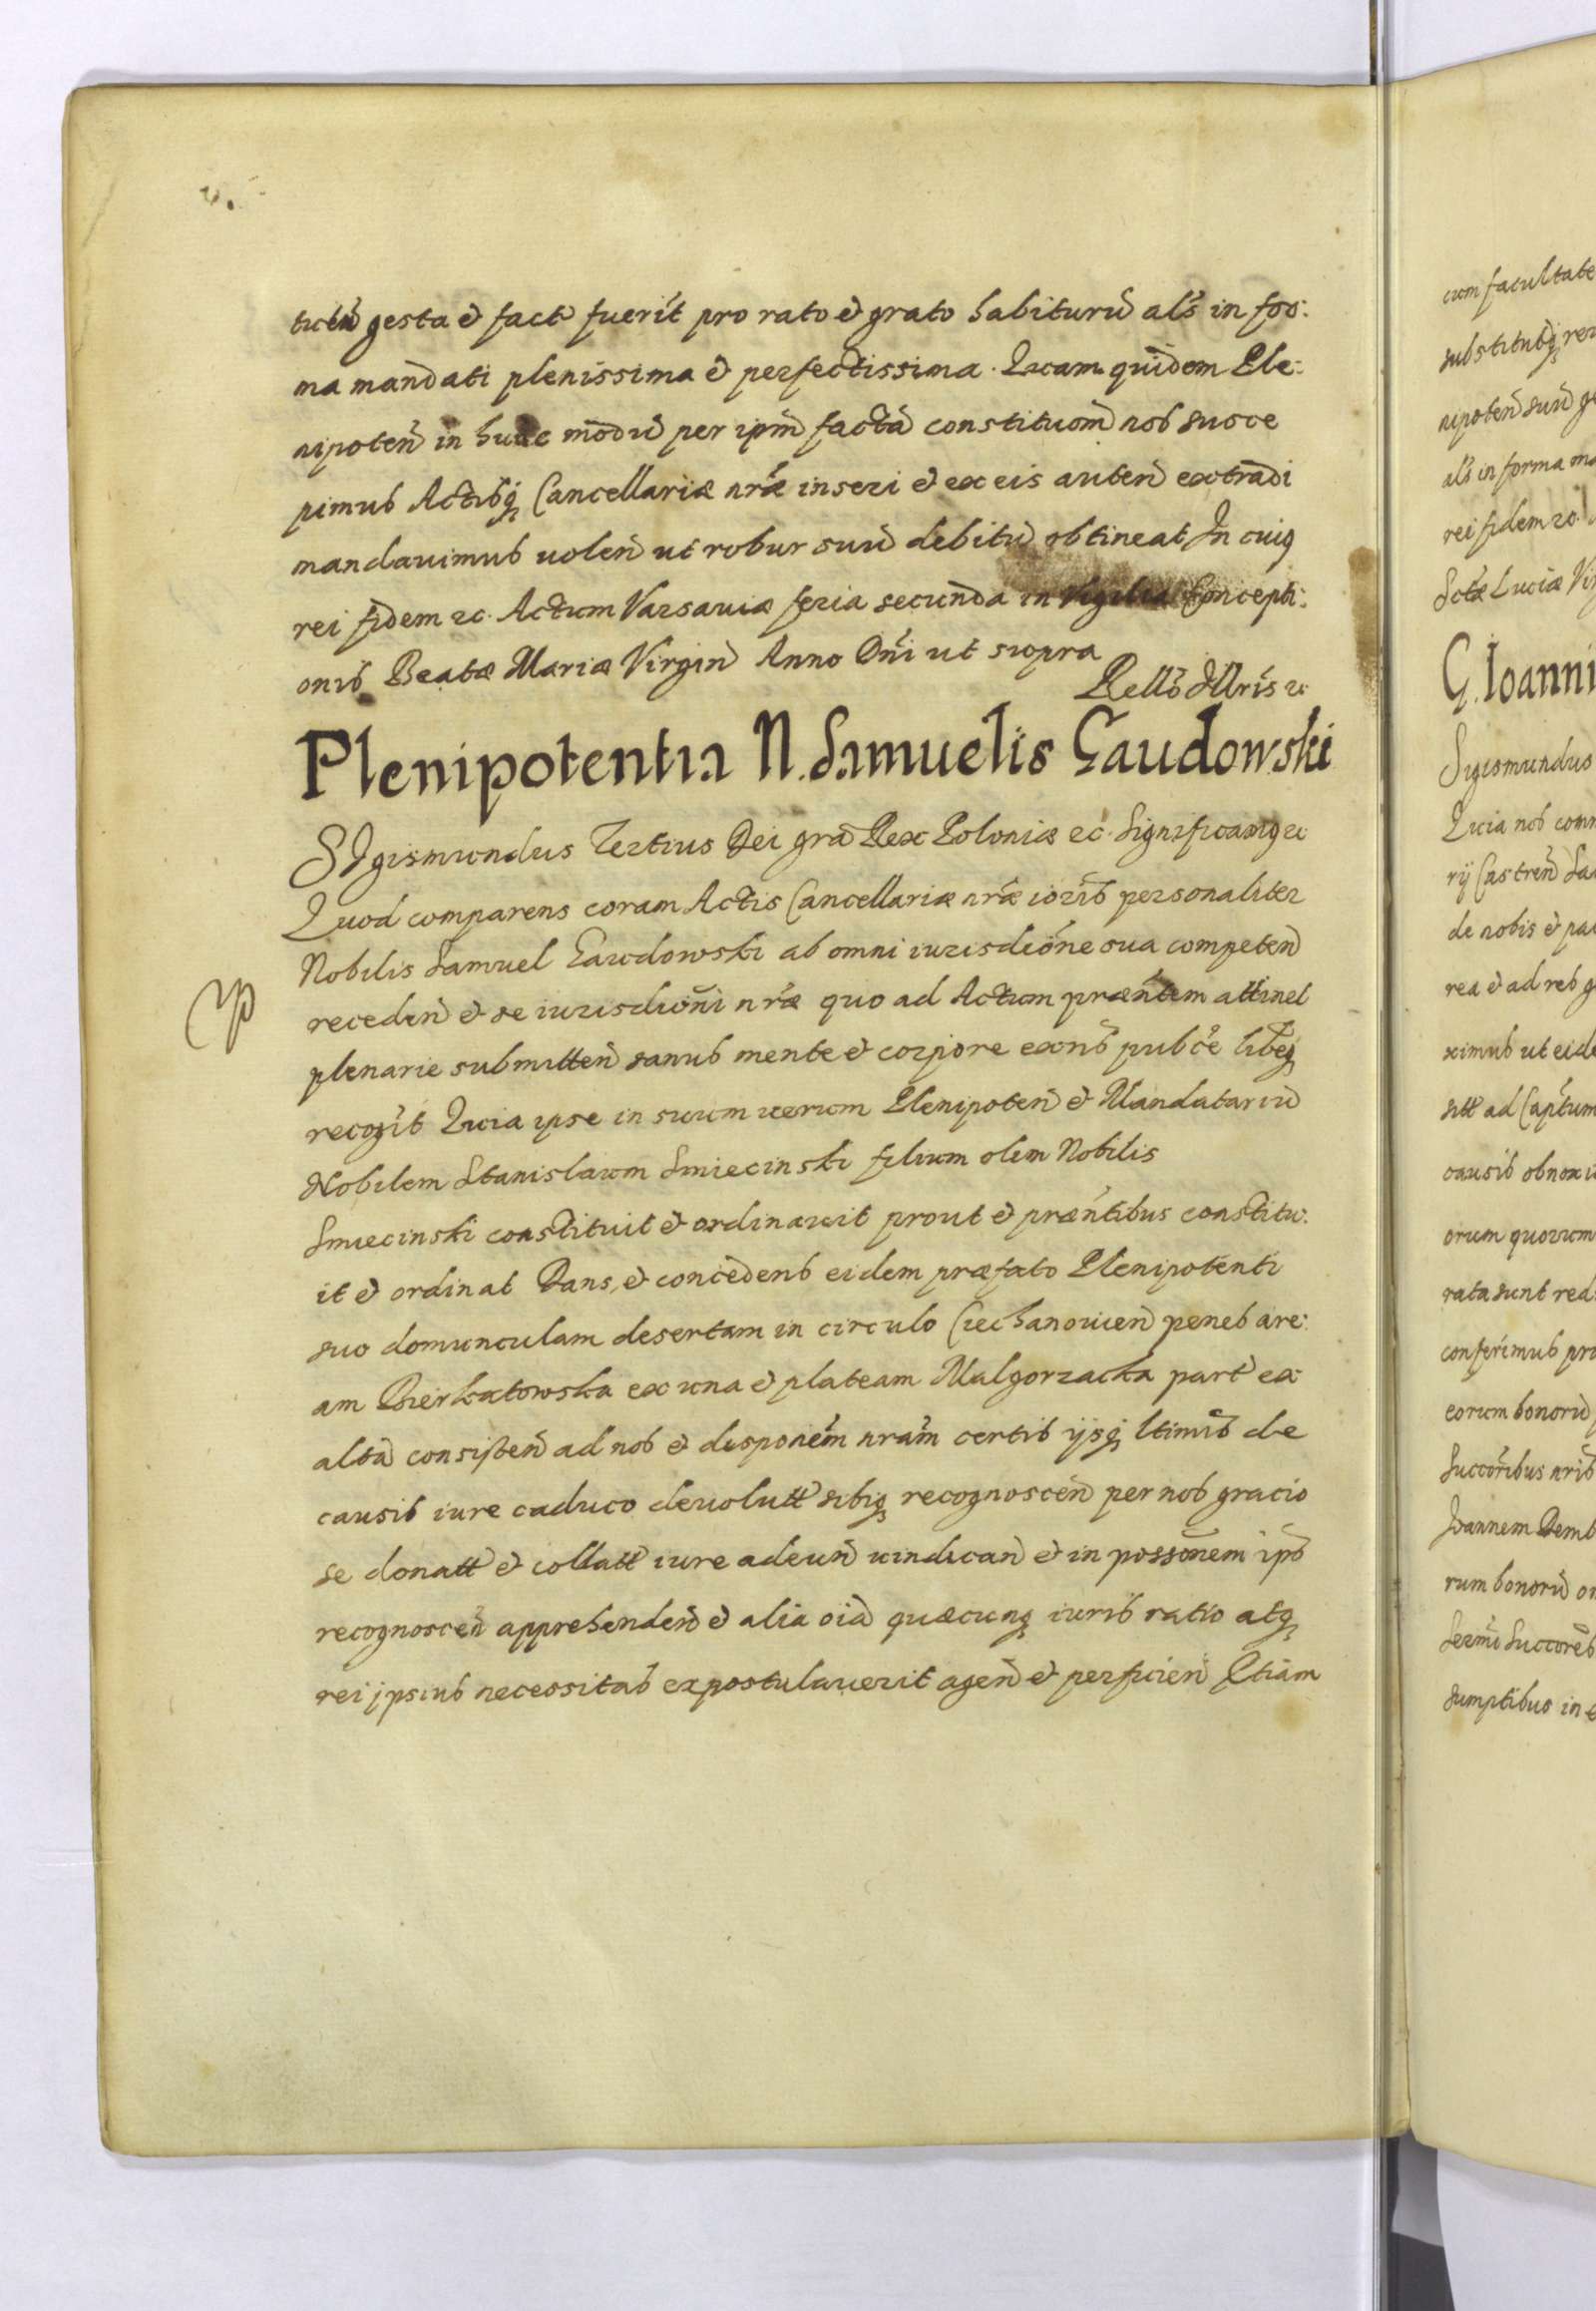 tuen̄ gesta et fact̄ fuerīt pro rato et grato habiturū als̄ in for:
ma mandati plenissima et perfectissima. Quam quidem Ple:
nipoten̄ in hunc modū per ipm̄ factā constituoem̄ nos susce
pimus Actisq; Cancellariæ nrǣ inseri et ex eis auten̄ extradi
mandauimus uolen̄ ut robur suū debitū obtineat In cuiq
rei fidem ec. Actum Varsauiæ feria secunda in Vigilia Concepti:
onis Beatæ Mariæ Virgin̄ Anno Dn̄i ut supra
Rell̄o Illrīs ec
Plenipotentia N. Samuelis Gaudowski
SIgismundus Tertius Dei gr̄a Rex Poloniæ ec. Significamq ec
Quod comparens coram Actis Cancellariæ nrǣ iorīb personaliter
Nobilis Samuel Gaudowski ab omni iurisdiōne sua competen̄
receden̄ et se iurisdiōni nrǣ quo ad Actum præn̄tem attinet
plenarie submitten̄ sanus mente et corpore exn̄s pubc̄e libeq
recogīt Quia ipse in suum uerum Plenipoten̄ et Mandatariū
Nobilem Stanislaum Smiecinski filium olim Nobilis
Smiecinski constituit et ordinauit prout et præn̄tibus constitu:
it et ordinat Dans, et concedens eidem præfato Plenipotenti
suo domunculam desertam in circulo Ciechanouien̄ penes are:
am Bierkatowska ex una et plateam Malgorzacka part̄ ex
alta consisten̄ ad nos et disponēm nram̄ certis ijsq; ltimīs de
causis iure caduco deuolutt̄ sibiq; recognoscen̄ per nos gracio
se donatt̄ et collatt̄ iure adeun̄ uindican̄ et in possōnem ips̄
recognoscen̄ apprehenden̄ et alia oiā quæcunq; iuris ratio atq;
rei ipsius necessitas expostulauerit agen̄ et perficien̄ Etiam
cum facultate
substitutisq; rer
nipoten̄ suū ge
als̄ in forma ma
rei fidem ec.
Sctǣ Luciæ Vir
G. Ioanni
Sigismundus
Quia nos comm
rij Castren̄ Sa
de nobis et pa
rea et ad res g
ximus ut eide
sitt̄ ad Captum
causis obnoxi
orum quorum
rata sunt red
conferimus pr
eorum bonorū
Succoribus nrīs
Ioannem Demb
rum bonorū o
Serm̄i Succorēs
sumptibus in e